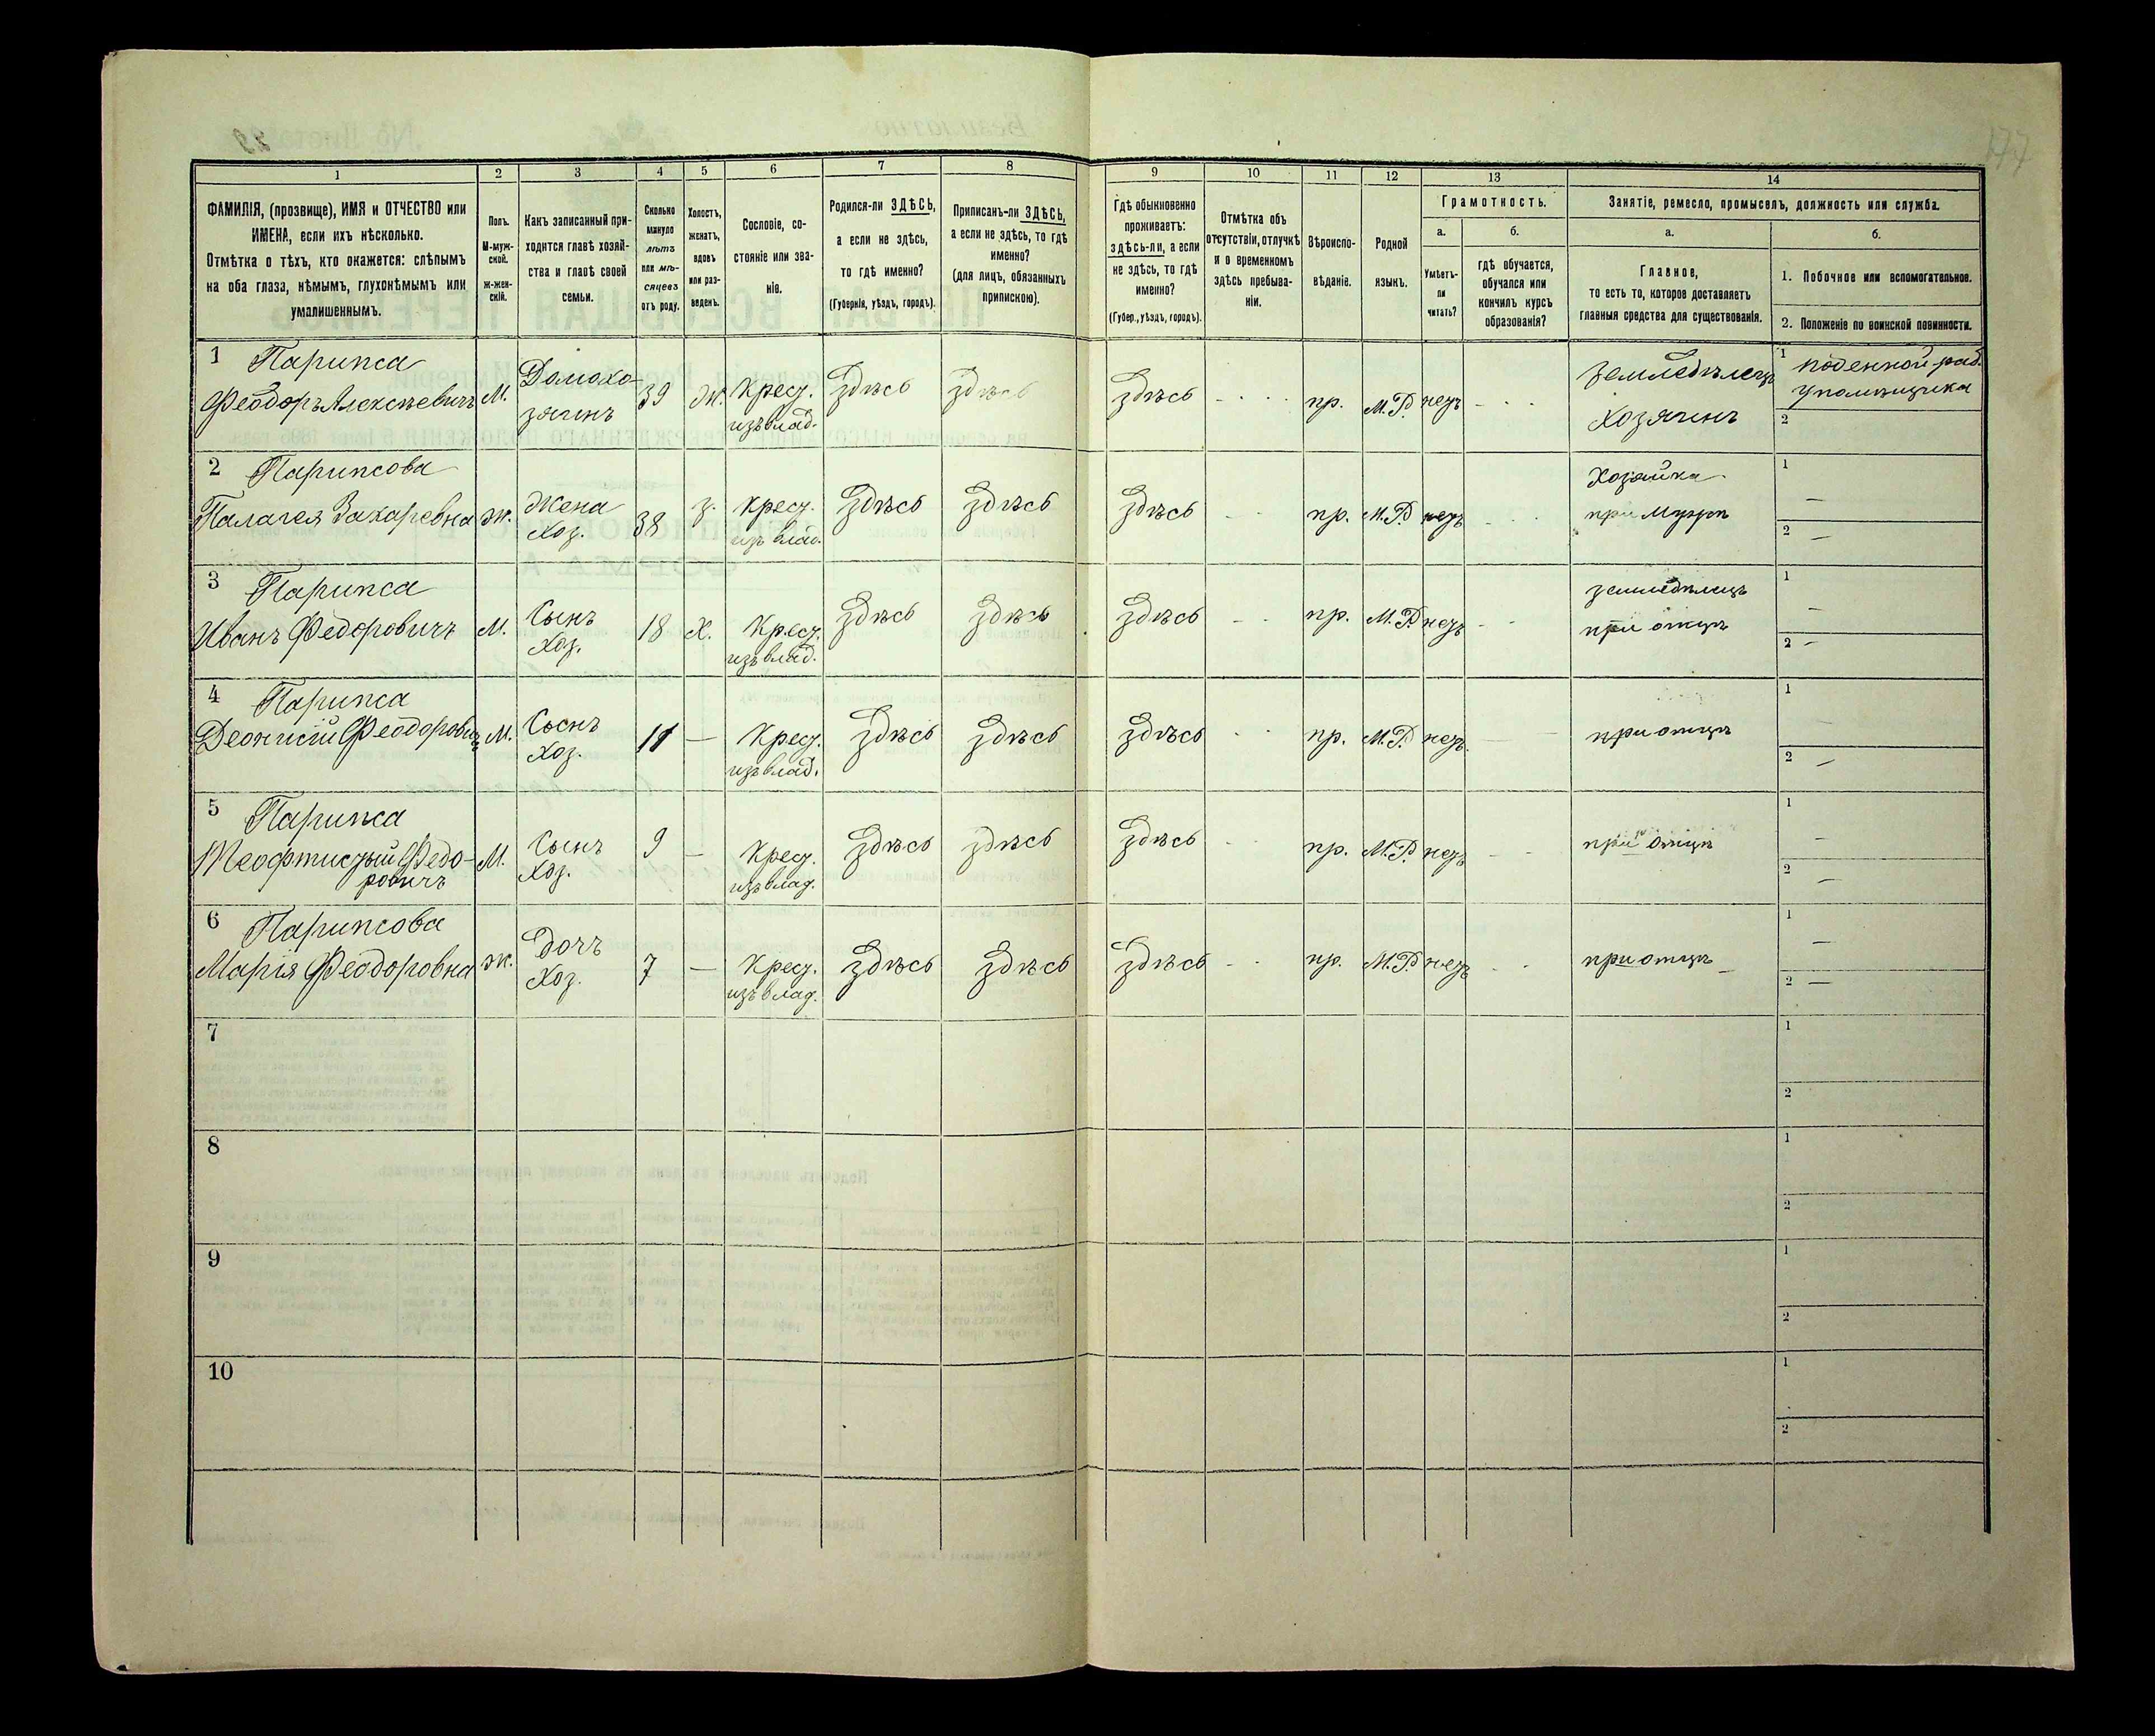 177
1
2
3
4
5
6
7
8
9
10
11
12
13
14
ФАМИЛІЯ, (прозвище), ИМЯ и ОТЧЕСТВО или
ИМЕНА, если ихъ нѣсколько.
Отмѣтка о тѣхъ, кто окажется: слѣпымъ
на оба глаза, нѣмымъ, глухонѣмымъ или
умалишеннымъ.
Полъ.
М-муж-
ской.
ж-жен-
скій.
Какъ записанный при-
ходится главѣ хозяй-
ства и главѣ своей
семьи.
Сколько
минуло
лѣтъ
или мѣ-
сяцевъ
отъ роду.
Холостъ,
женатъ,
вдовъ
или раз-
веденъ.
Сословіе, со-
стояніе или зва-
ніе.
Родился-ли ЗДѢСЬ,
а если не здѣсь,
то гдѣ именно?
(Губернія, уѣздъ, городъ).
Приписанъ-ли ЗДѢСЬ,
а если не здѣсь, то гдѣ
именно?
(для лицъ, обязанныхъ
припискою).
Гдѣ обыкновенно
проживаетъ:
здѣсь-ли, а если
не здѣсь, то гдѣ
именно?
(Губер., уѣздъ, городъ).
Отмѣтка объ
отсутствіи, отлучкѣ
и о временномъ
здѣсь пребыва-
ніи.
Вѣроиспо-
вѣданіе.
Родной
языкъ.
Грамотность.
а.
Умѣетъ-
ли
читать?
б.
гдѣ обучается,
обучался или
кончилъ курсъ
образованія?
Занятіе, ремесло, промыселъ, должность или служба.
а.
Главное,
то есть то, которое доставляетъ
главныя средства для существованія.
б.
1. Побочное или вспомогательное.
2. Положеніе по воинской повинности.
1 Парипса
Феодоръ Алексѣевичъ
М.
Домохо-
зяинъ
39
Ж.
Крест.
изъ влад.
Здѣсь
Здѣсь
Здѣсь
пр.
М.Р.
нѣтъ
Земледѣлецъ
Хозяинъ
1 поденной раб.
у помѣщика
2
2 Парипсова
Палагея Захаревна
Ж.
Жена
Хоз.
38
з.
Крест.
изъ влад.
Здѣсь
Здѣсь
Здѣсь
пр.
М.Р.
нѣтъ
Хозяйка
при мужѣ
1 —
2 —
3 Парипса
Иванъ Федоровичъ
М.
Сынъ
Хоз.
18
Х.
Крест.
изъ влад.
Здѣсь
Здѣсь
Здѣсь
пр.
М.Р.
нѣтъ
земледѣлецъ
при отцѣ
1 —
2 —
4 Парипса
Деонисій Феодоровичъ
М.
Сынъ
Хоз.
11
—
Крест.
изъ влад.
Здѣсь
Здѣсь
Здѣсь
пр.
М.Р.
нѣтъ
при отцѣ
1 —
2 —
5 Парипса
Феодо-
ровичъ
М.
Сынъ
Хоз.
9
—
Крест.
изъ влад.
Здѣсь
Здѣсь
Здѣсь
пр.
М.Р.
нѣтъ
при отцѣ
1 —
2 —
6 Парипсова
Марія Феодоровна
Ж.
Дочъ
Хоз.
7
—
Крест.
изъ влад.
Здѣсь
Здѣсь
Здѣсь
пр.
М.Р.
нѣтъ
при отцѣ
1 —
2 —
7
1
2
8
1
2
9
1
2
10
1
2